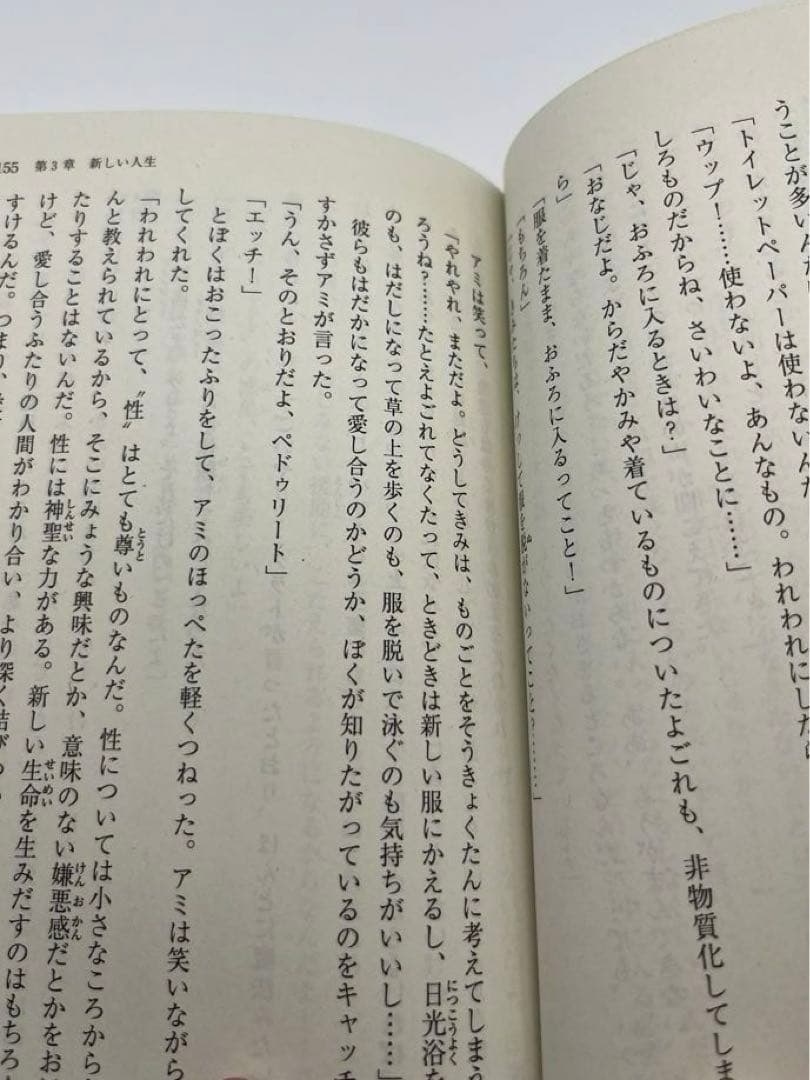 うことが多いんだ
「トイレットペーパーは使わないんだ
「ウップ!……使わないよ、あんなもの。われわれにしたら
しろものだからね、さいわいなことに……」
「じゃ、おふろに入るときは?」
「おなじだよ。からだやかみや着ているものについたよごれも、非物質化してしま
ら」
「服を着たまま、おふろに入るってこと!」
「もちろん」
って服を脱がないってこと?……」
155 第3章 新しい人生
アミは笑って、
「やれやれ、まただよ。どうしてきみは、ものごとをそうきょくたんに考えてしまう
ろうね?……たとえよごれてなくたって、ときどきは新しい服にかえるし、日光浴を
のも、はだしになって草の上を歩くのも、服を脱いで泳ぐのも気持ちがいいし……」
彼らもはだかになって愛し合うのかどうか、ぼくが知りたがっているのをキャッチ
すかさずアミが言った。
「うん、そのとおりだよ、ペドゥリート」
「エッチ!」
とぼくはおこったふりをして、アミのほっぺたを軽くつねった。アミは笑いながら
してくれた。
「われわれにとって、〝性〟はとても尊いものなんだ。性については小さなころから
んと教えられているから、そこにみょうな興味だとか、意味のない嫌悪感だとかをお
たりすることはないんだ。性には神聖な力がある。新しい生命を生みだすのはもちろ
けど、愛し合うふたりの人間がわかり合い、より深く結び
すけるんだ。つまり、